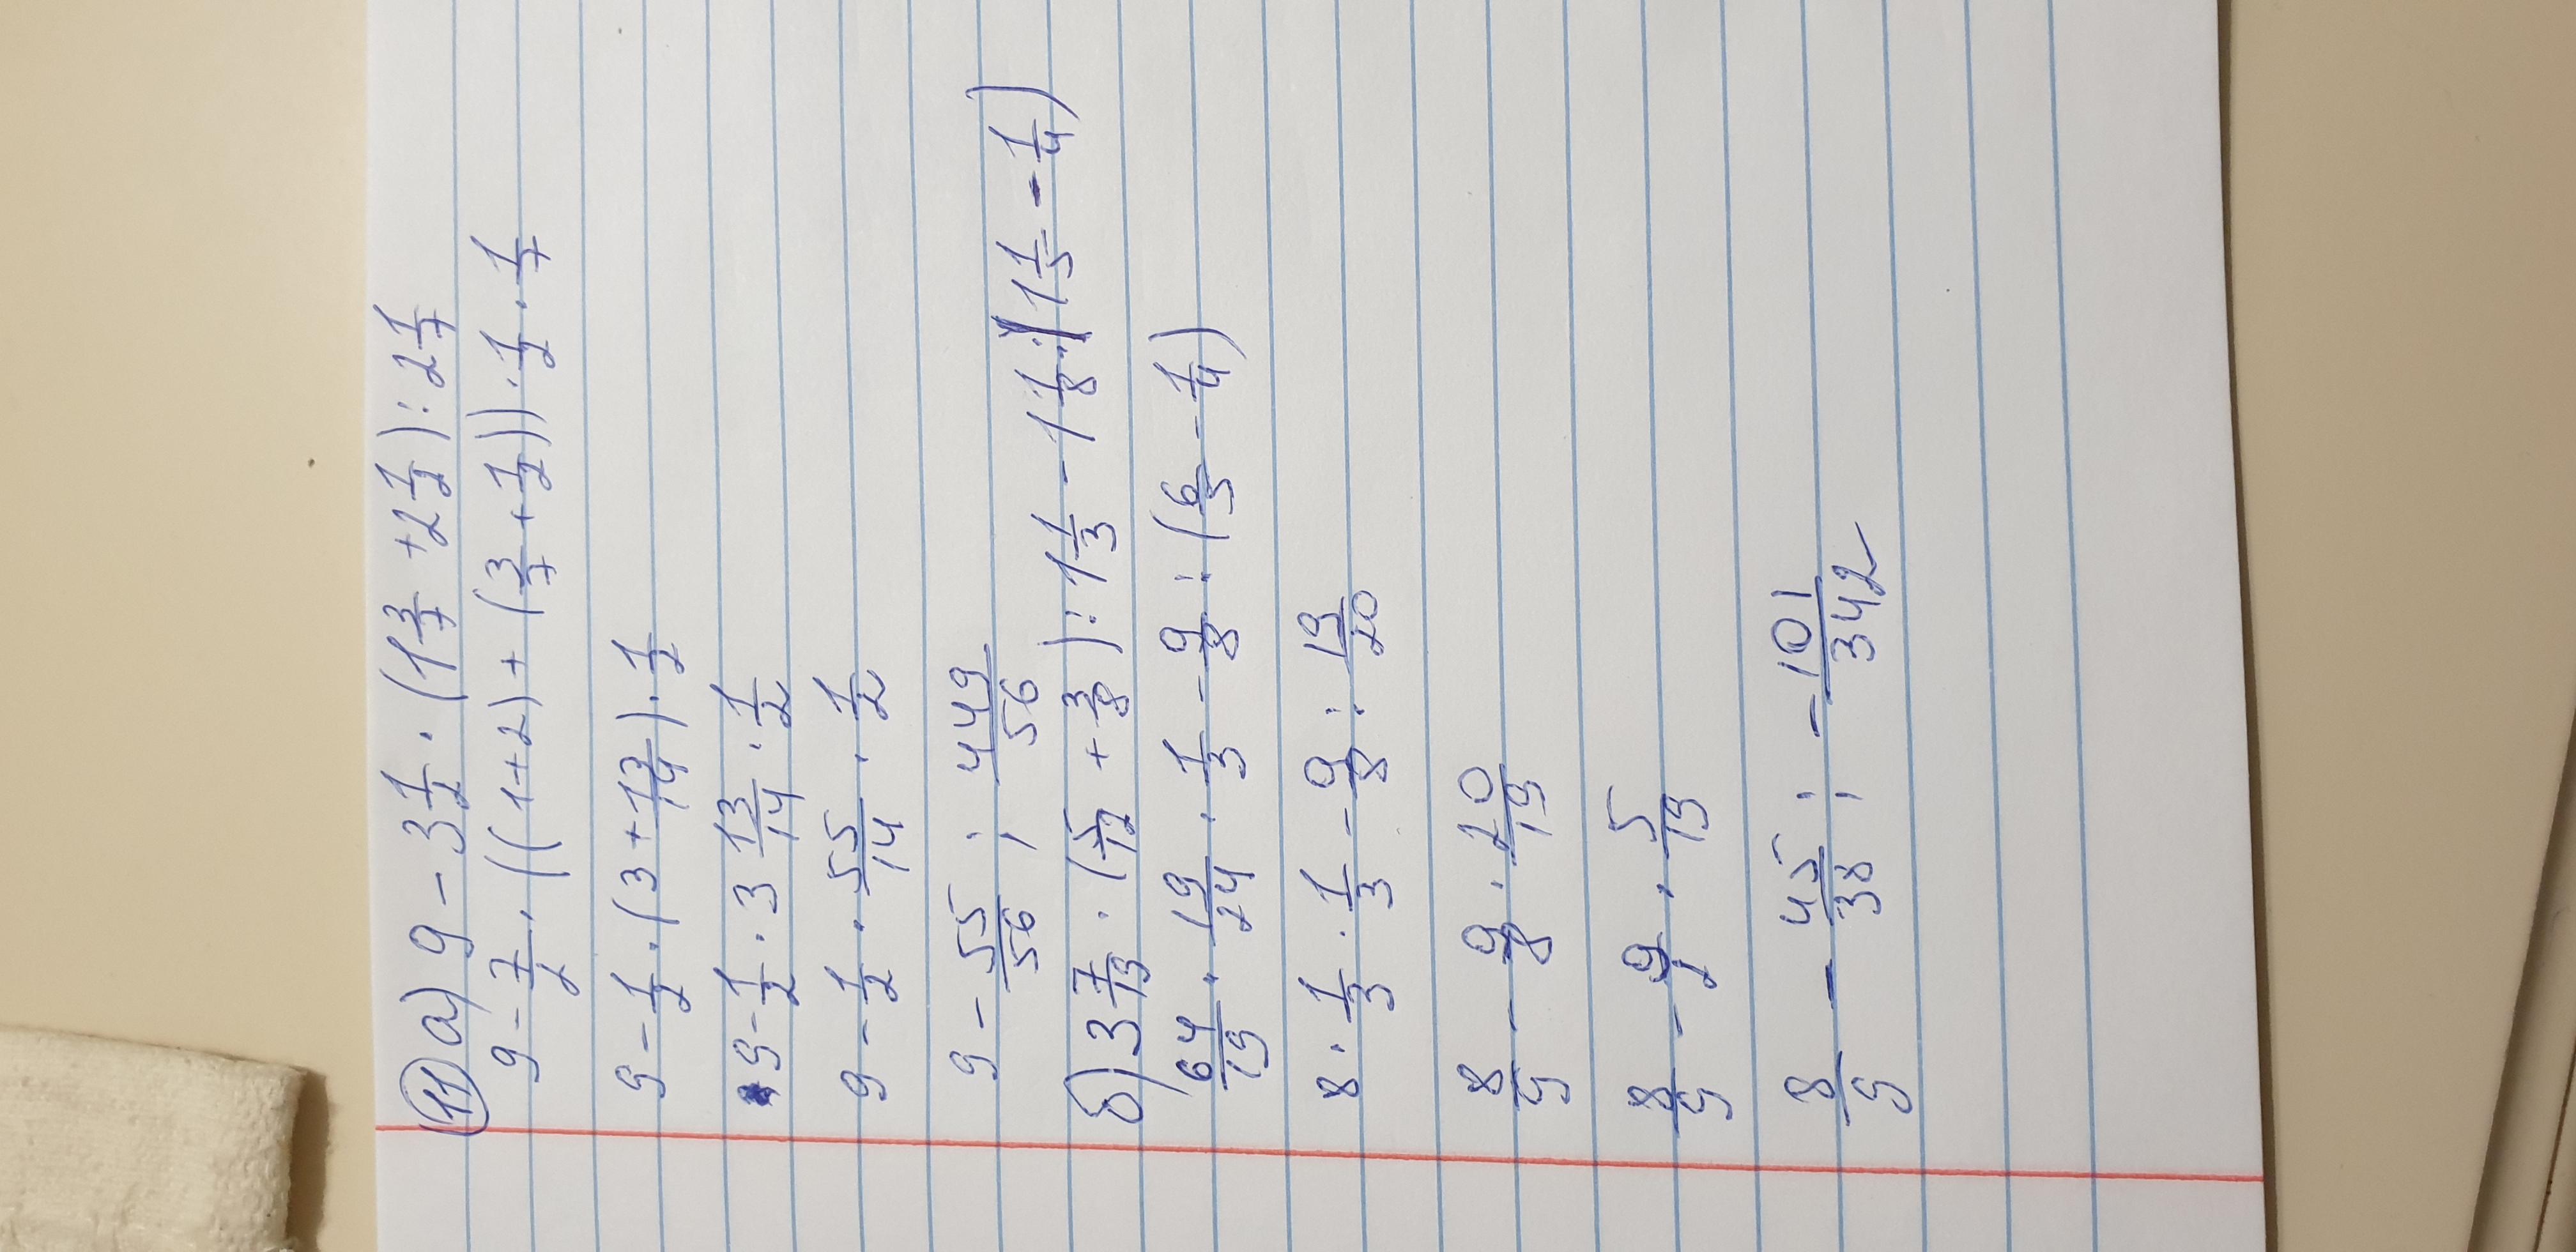 11 а) 9 - 3 1/2 · (1 3/7 + 2 1/2) : 2 1/7
9 - 7/2 · ((1+2) + (3/7 + 1/2)) · 1/2 · 1/7
9 - 1/2 · (3 + 13/14) · 1/2
9 - 1/2 · 3 13/14 · 1/2
9 - 1/2 · 55/14 · 1/2
9 - 55/56 ; 449/56
б) 3 7/19 · (5/12 + 3/8) : 1 1/3 - 1 1/8 : (1 1/5 - 1/4)
64/19 · 19/24 · 1/3 - 9/8 : (6/5 - 1/4)
8 · 1/3 · 1/3 - 9/8 : 19/20
8/9 - 9/8 · 20/19
8/9 - 9/2 · 5/19
8/9 - 45/38 ; - 101/342